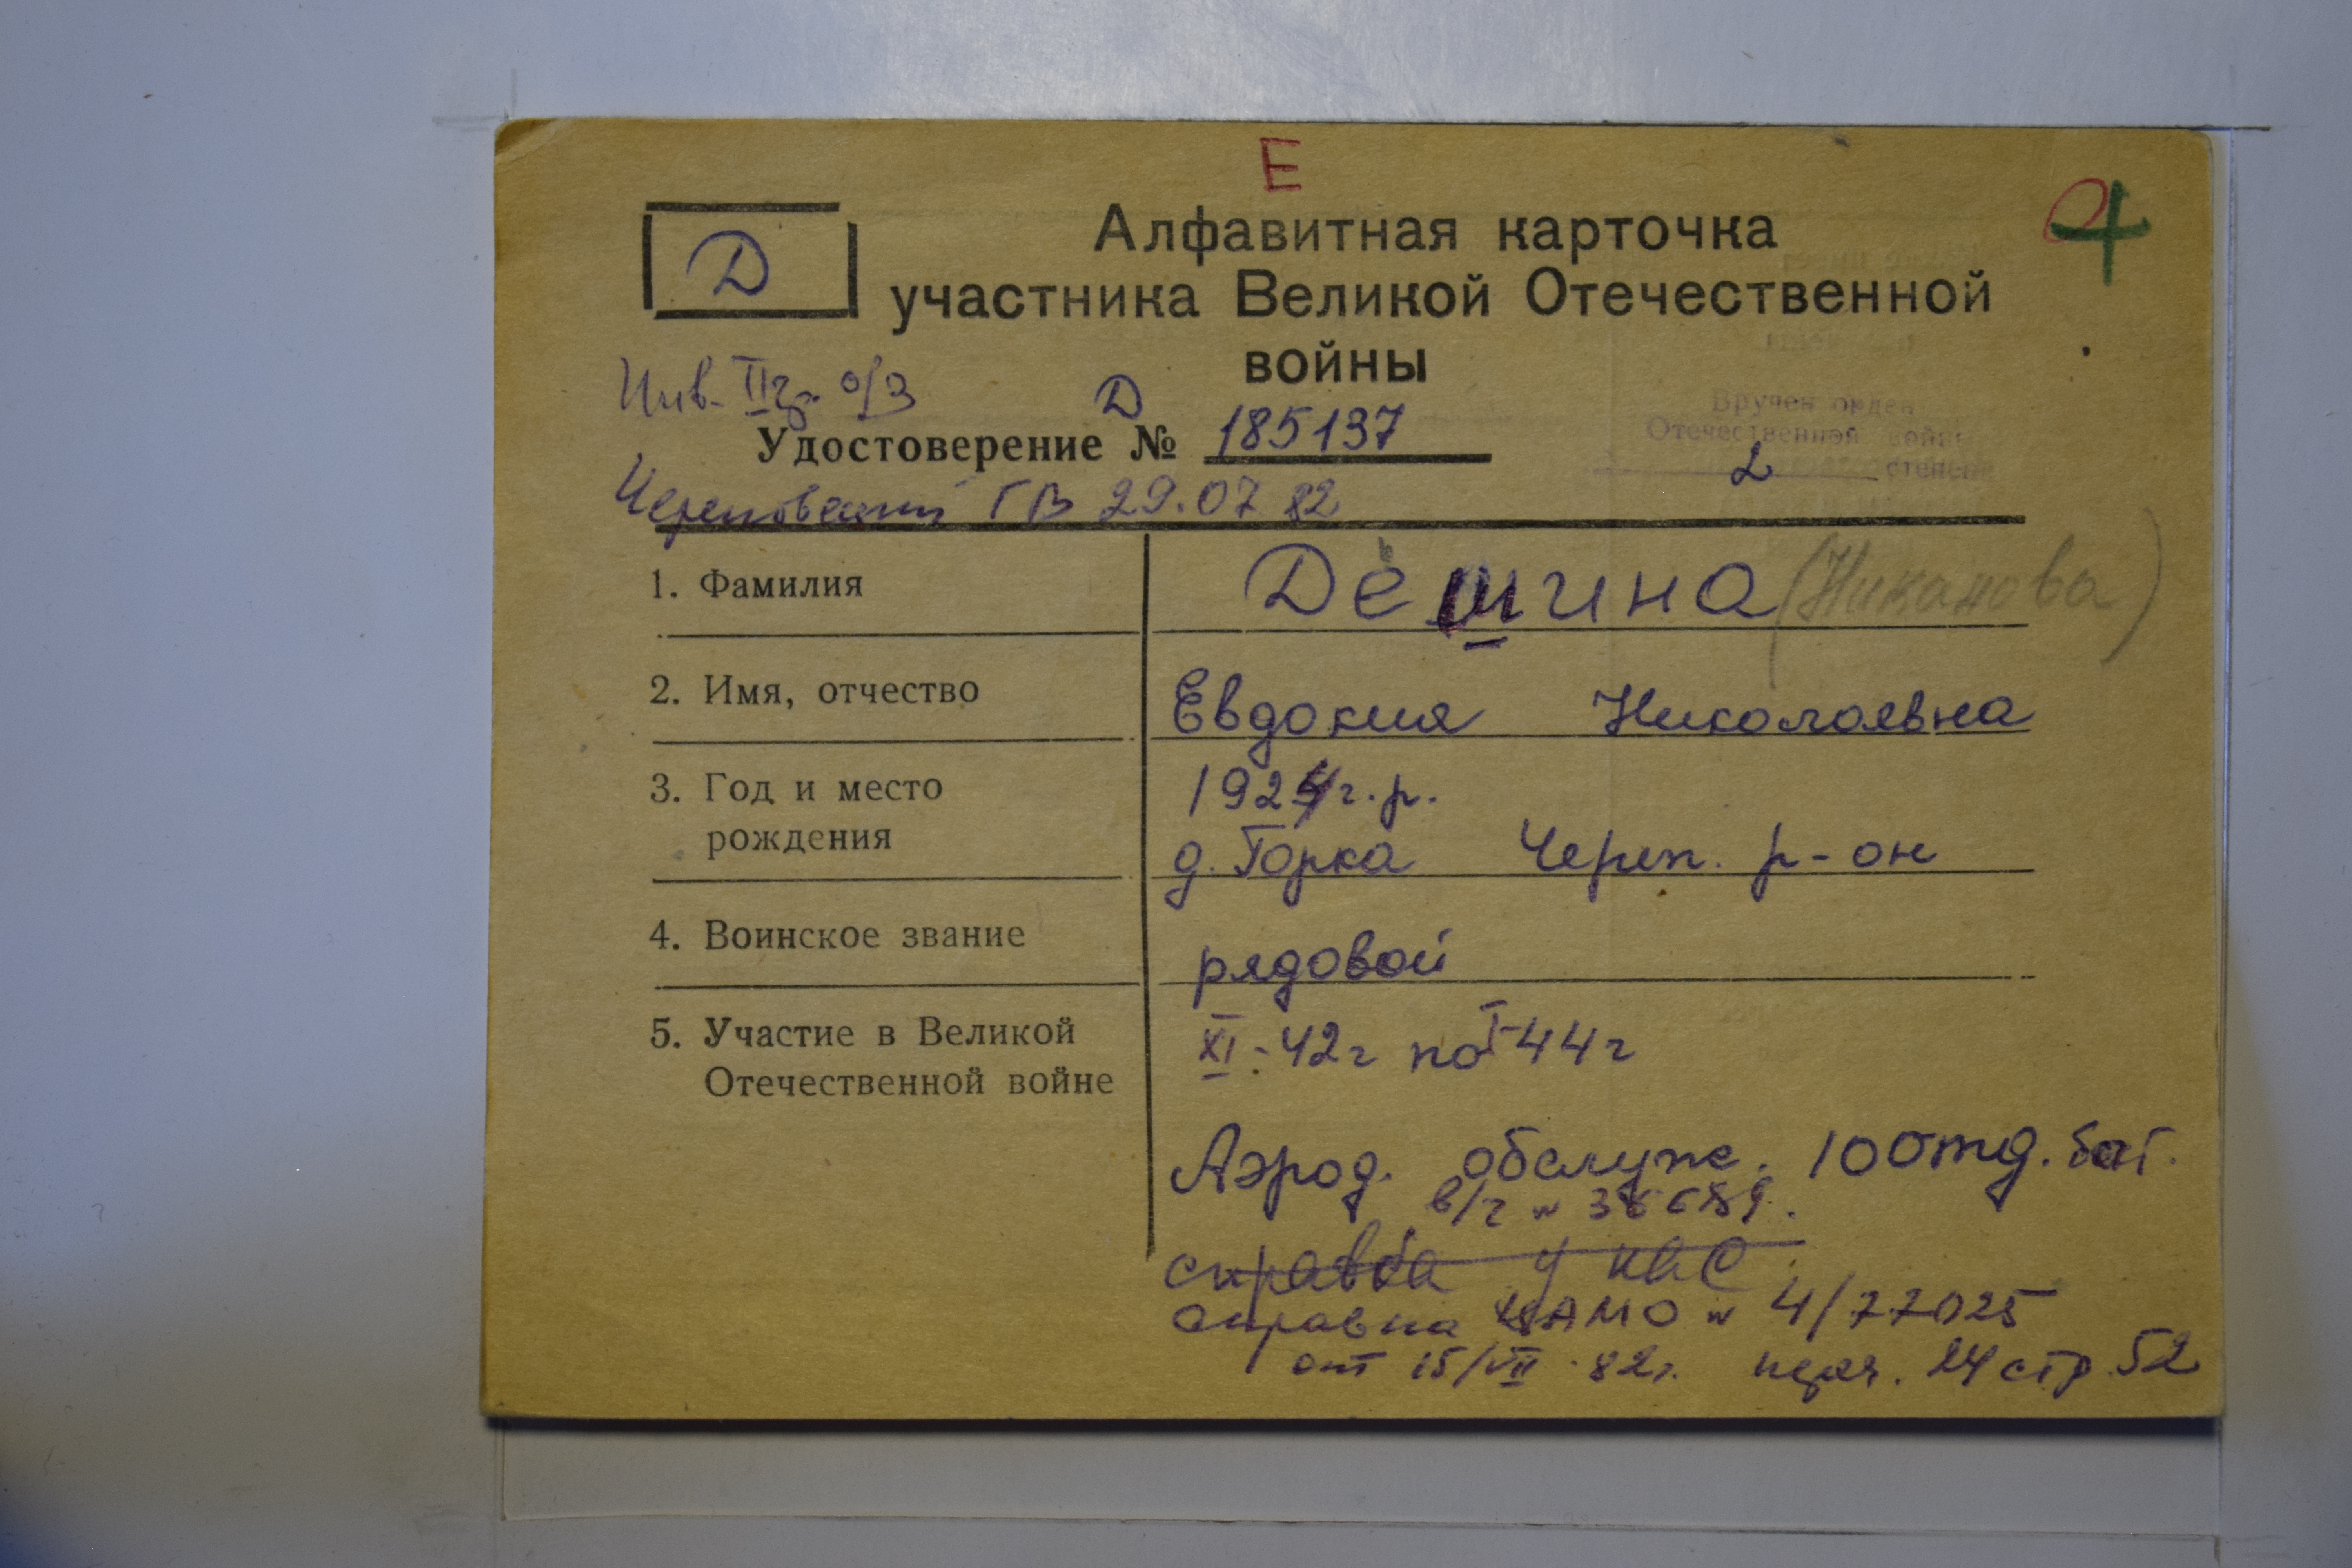 Е
Д
4
Алфавитная карточка
участника Великой Отечественной
войны
Инв. II гр. о/з
Удостоверение Д № 185137
Вручен орден
Отечественной войны
2 степени
Череповецкий ГВ 29.07 82
1. Фамилия Дёшина (Никанова)
2. Имя, отчество Евдокия Николаевна
3. Год и место 1924 г.р.
рождения д. Горка Череп. р-он
4. Воинское звание рядовой
5. Участие в Великой XI-42г по I-44г
Отечественной войне
Аэрод. обслуж. 100тд. бат.
в/ч №
справка у КВС
справка ЦАМО № 4/77025
от 15/VII-82г. 24 стр. 52